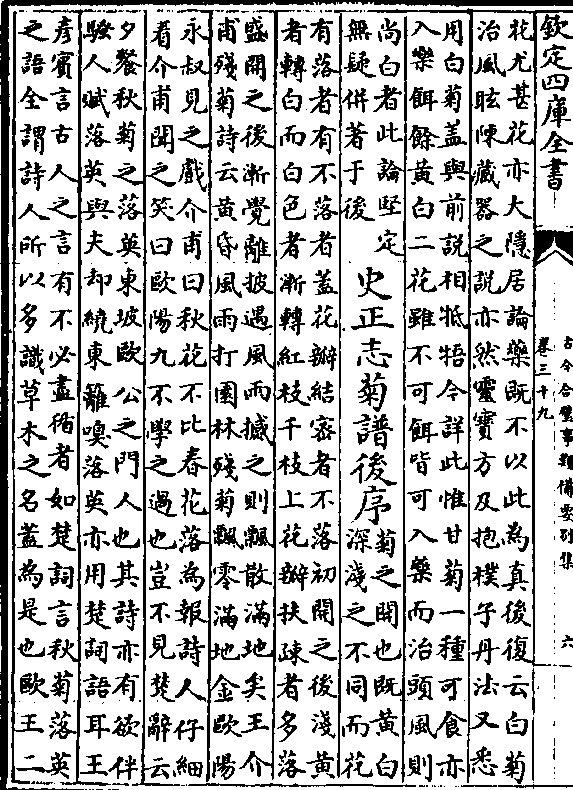 欽定四庫全書
古今合璧事類備要别集
卷三十九
六
花尤甚花亦大隱居論藥既不以此為真後復云白菊
治風眩陳藏器之説亦然靈寶方及抱樸子丹法又悉
用白菊盖與前説相牴牾今詳此惟甘菊一種可食亦
入藥餌餘黄白二花雖不可餌皆可入藥而治頭風則
尚白者此論堅定
無疑併著于後
史正志菊譜後序
菊之開也既黄白
深淺之不同而花
有落者有不落者盖花瓣結宻者不落初開之後淺黄
者轉白而白色者漸轉紅枝千枝上花瓣扶疎者多落
盛開之後漸覺離披遇風雨撼之則飄散滿地矣王介
甫殘菊詩云黄昏風雨打園林殘菊飄零滿地金歐陽
永叔見之戲介甫曰秋花不比春花落為報詩人仔細
看介甫聞之笑曰歐陽九不學之過也豈不見楚辭云
夕餐秋菊之落英東坡歐公之門人也其詩亦有欲伴
騷人賦落英與夫却繞東籬嗅落英亦用楚詞語耳王
彦賓言古人之言有不必盡循者如楚詞言秋菊落英
之語全謂詩人所以多識草木之名盖為是也歐王二